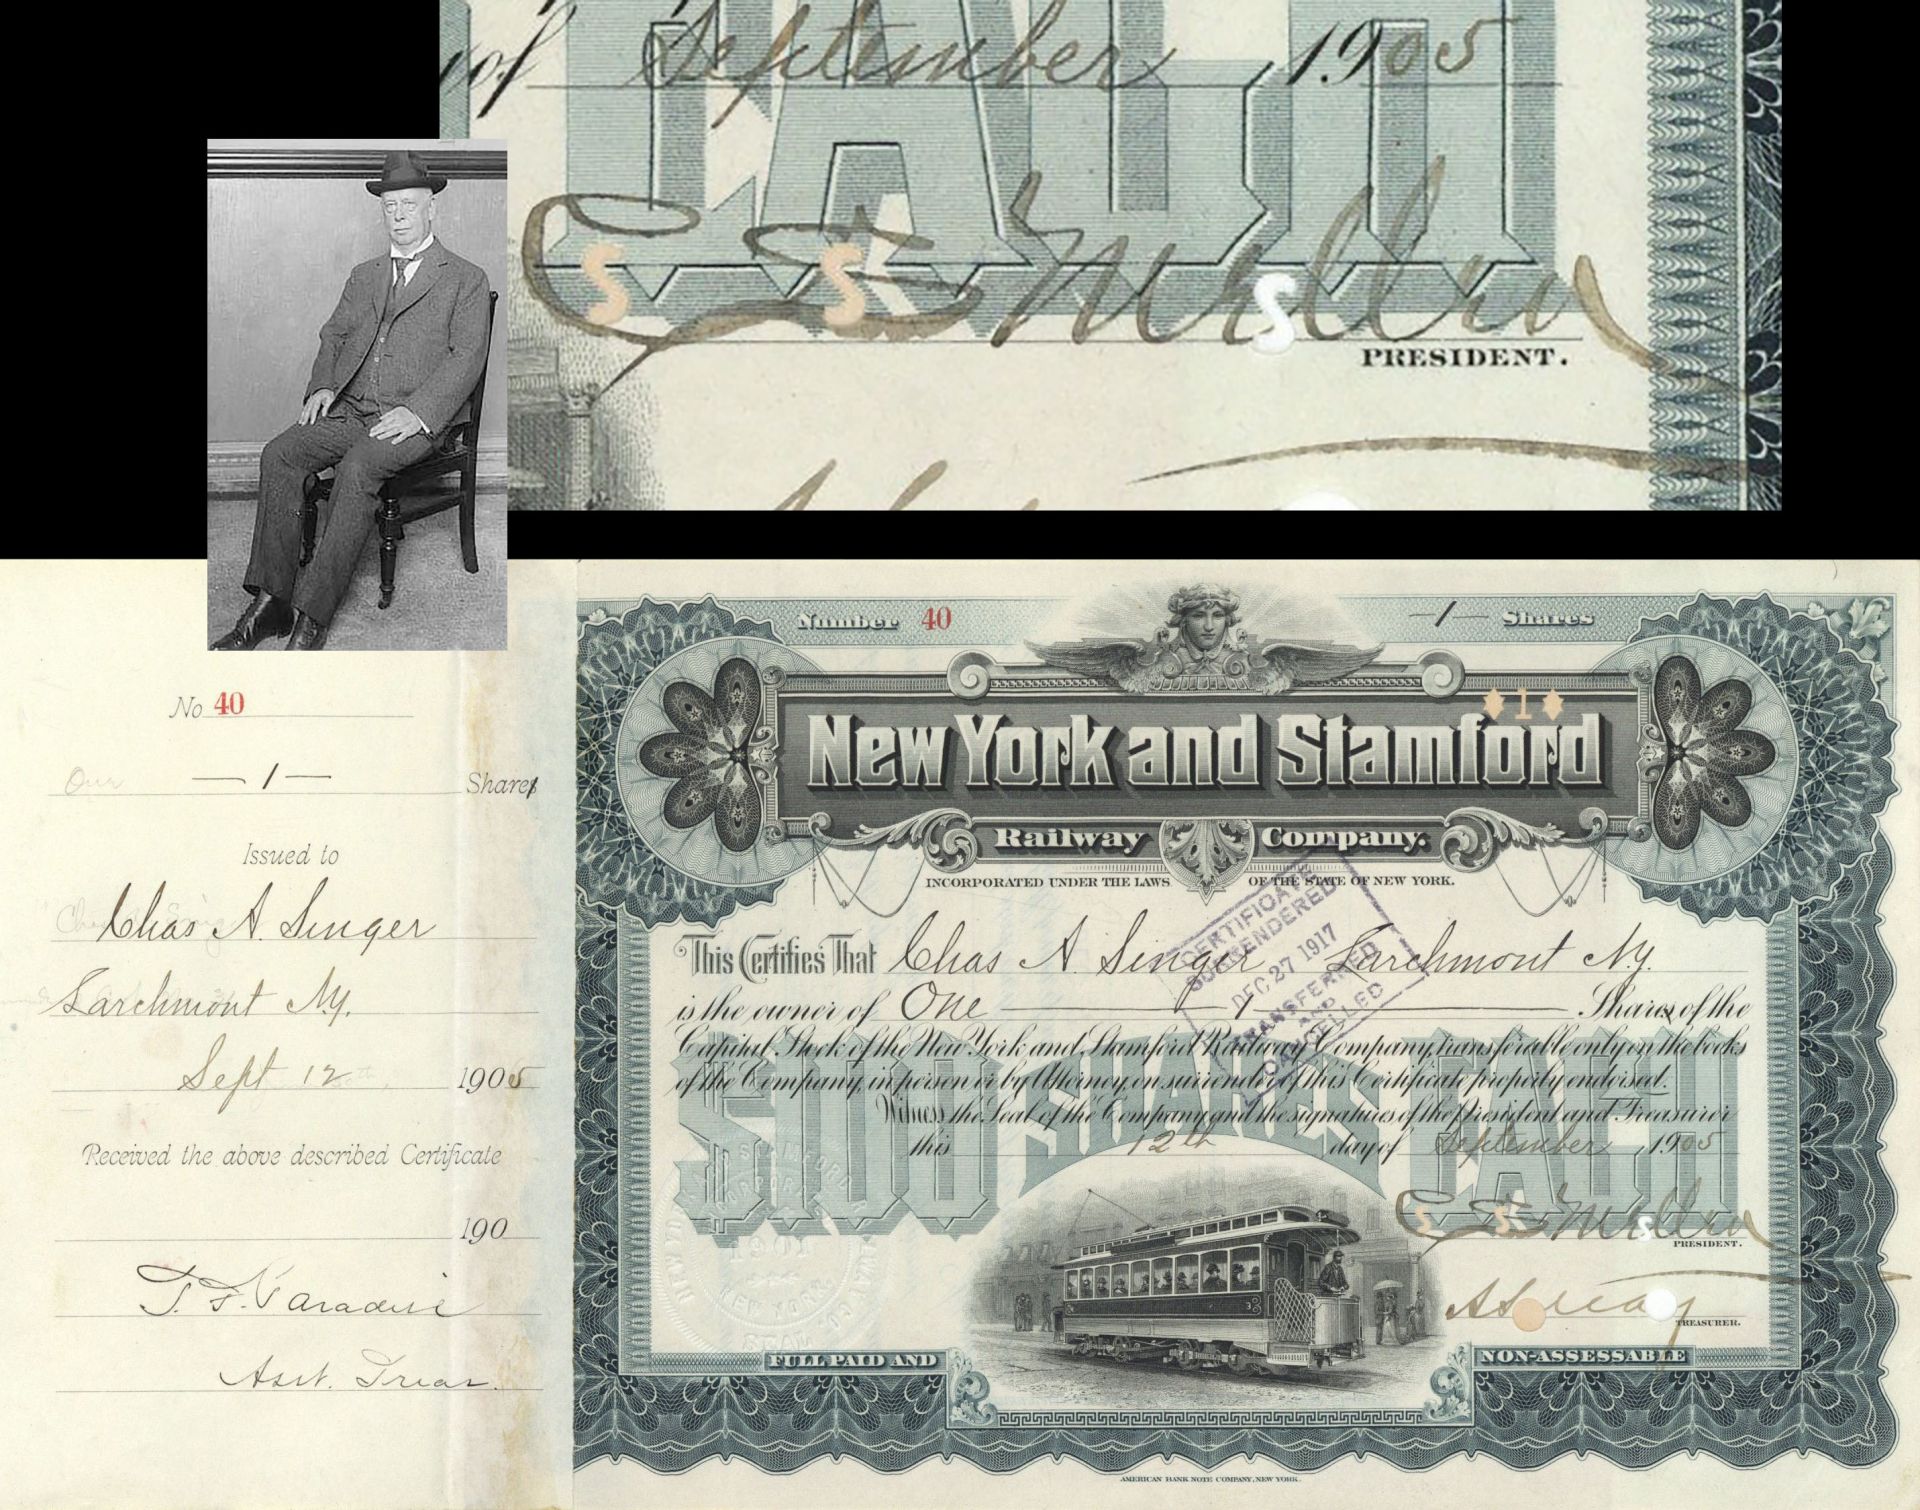 of September 1905
C S Mellen
PRESIDENT.
Number 40
—1— Shares
1
New York and Stamford
Railway Company.
INCORPORATED UNDER THE LAWS OF THE STATE OF NEW YORK.
This Certifies That Chas A. Singer Larchmont N.Y.
is the owner of One — 1 — Shares of the
Capital Stock of the New York and Stamford Railway Company, transferable only on the books
of the Company, in person or by Attorney, on surrender of this Certificate properly endorsed.
Witness the Seal of the Company and the signatures of the President and Treasurer
this 12th day of September 1905
$100 SHARES EACH
CERTIFICATE
SURRENDERED
DEC 27 1917
TRANSFERRED
AND
CANCELLED
C S Mellen
PRESIDENT.
TREASURER.
1901
NEW YORK
SEAL
FULL PAID AND NON-ASSESSABLE
AMERICAN BANK NOTE COMPANY, NEW YORK.
No 40
One —1— Shares
Issued to
Chas A. Singer
Larchmont N.Y.
Sept 12 1905
Received the above described Certificate
190
Asst. Treas.